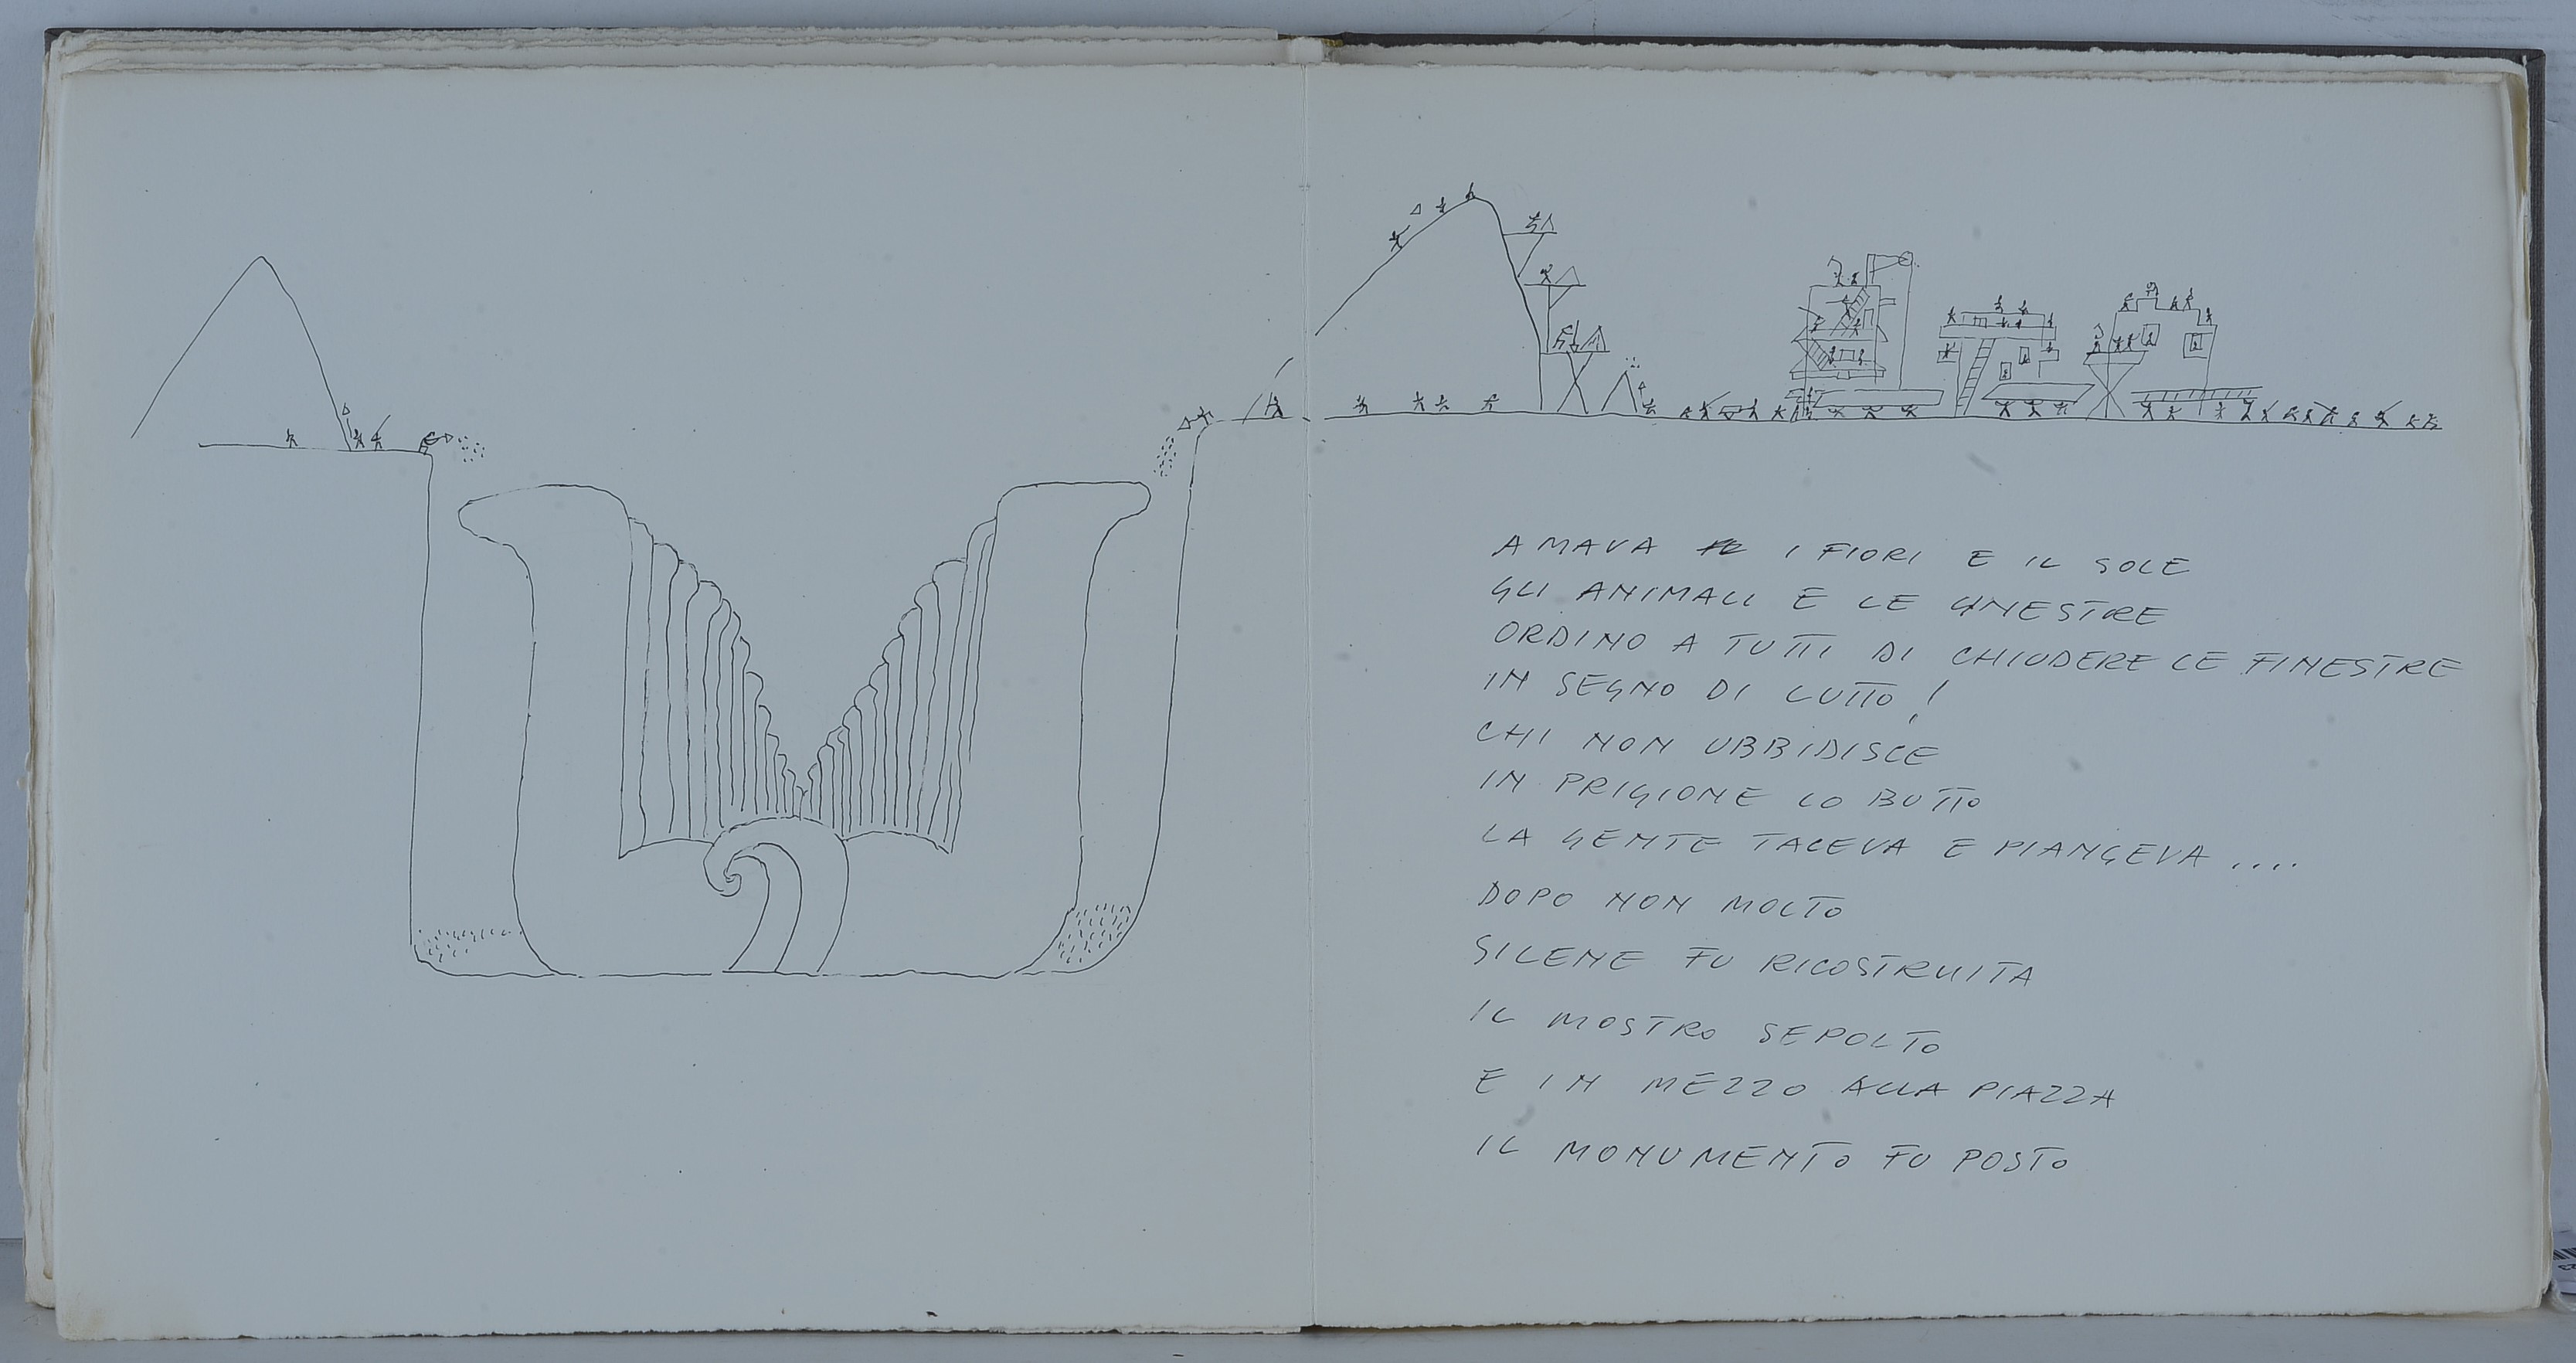 AMAVA I FIORI E IL SOLE
GLI ANIMALI E LE GINESTRE
ORDINO A TUTTI DI CHIUDERE LE FINESTRE
IN SEGNO DI LUTTO!
CHI NON UBBIDISCE
IN PRIGIONE LO BUTTO
LA GENTE TACEVA E PIANGEVA ....
DOPO NON MOLTO
SILENE FU RICOSTRUITA
IL MOSTRO SEPOLTO
E IN MEZZO ALLA PIAZZA
IL MONUMENTO FU POSTO